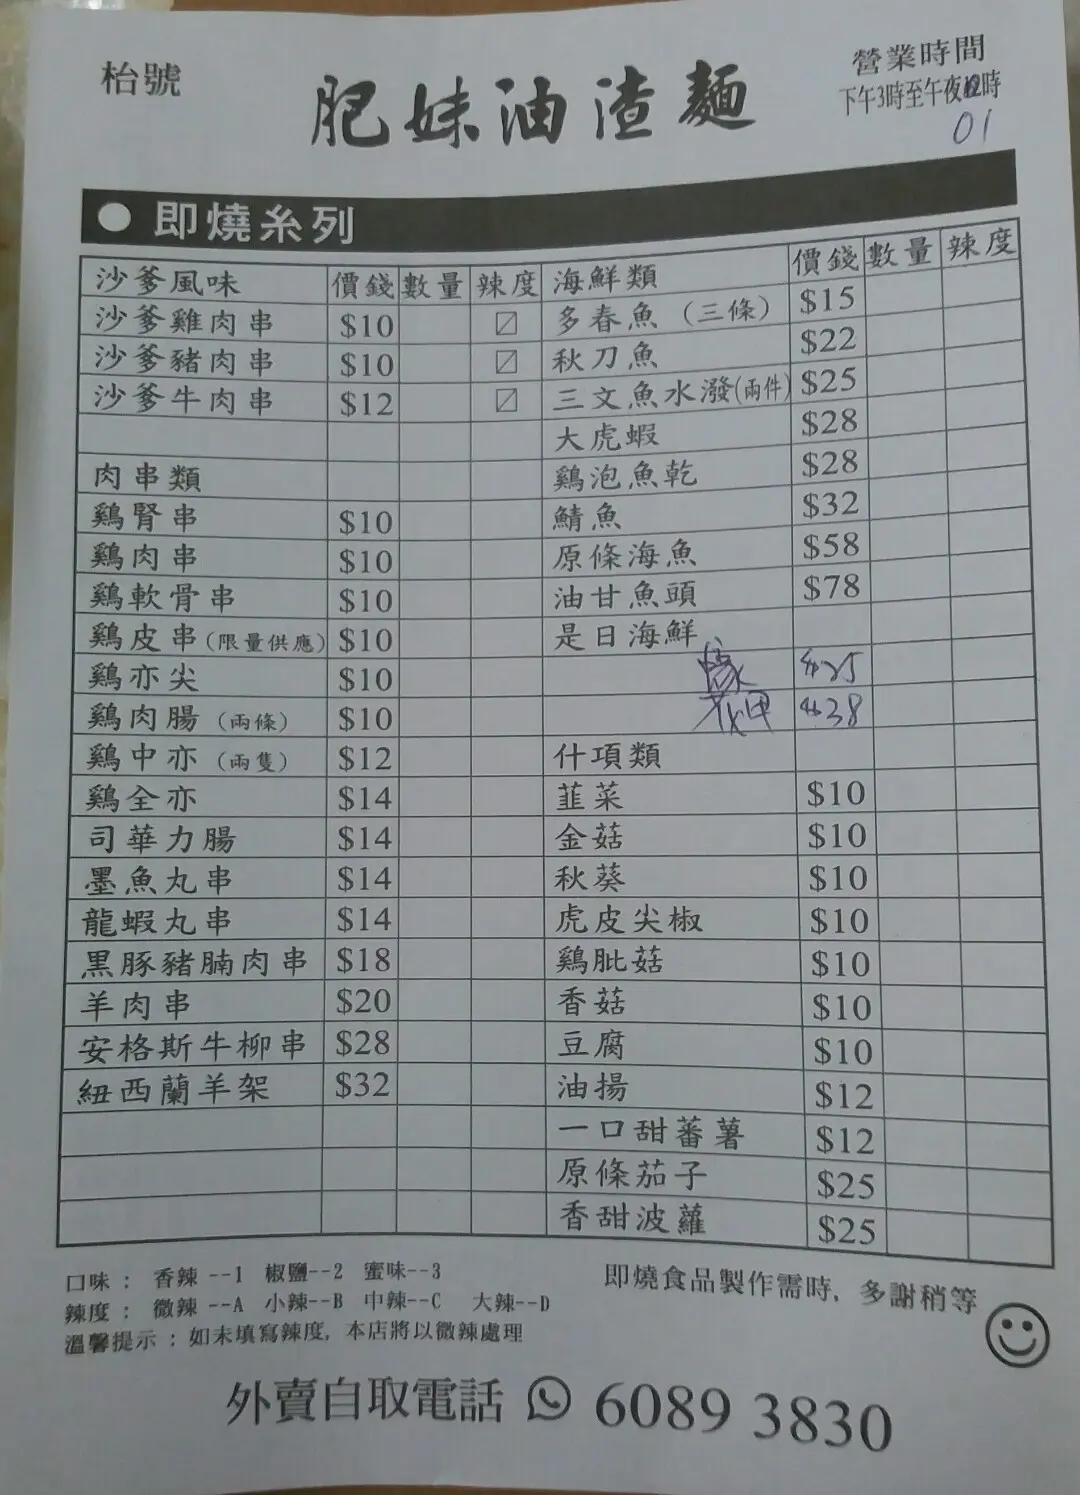 枱號
肥妹油渣麵
營業時間
下午3時至午夜12時
01
● 即燒糸列
沙爹風味 價錢 數量 辣度
沙爹雞肉串 $10
沙爹豬肉串 $10
沙爹牛肉串 $12
肉串類
鷄腎串 $10
鷄肉串 $10
鷄軟骨串 $10
鷄皮串(限量供應) $10
鷄亦尖 $10
鷄肉腸 (兩條) $10
鷄中亦 (兩隻) $12
鷄全亦 $14
司華力腸 $14
墨魚丸串 $14
龍蝦丸串 $14
黑豚豬腩肉串 $18
羊肉串 $20
安格斯牛柳串 $28
紐西蘭羊架 $32
海鮮類 價錢 數量 辣度
多春魚 (三條) $15
秋刀魚 $22
三文魚水潑(兩件) $25
大虎蝦 $28
鷄泡魚乾 $28
鯖魚 $32
原條海魚 $58
油甘魚頭 $78
是日海鮮
$25
花甲 $38
什項類
韮菜 $10
金菇 $10
秋葵 $10
虎皮尖椒 $10
鷄肶菇 $10
香菇 $10
豆腐 $10
油揚 $12
一口甜蕃薯 $12
原條茄子 $25
香甜波蘿 $25
口味： 香辣 --1 椒鹽--2 蜜味--3
辣度： 微辣 --A 小辣--B 中辣--C 大辣--D
溫馨提示：如未填寫辣度, 本店將以微辣處理
即燒食品製作需時, 多謝稍等
外賣自取電話 6089 3830